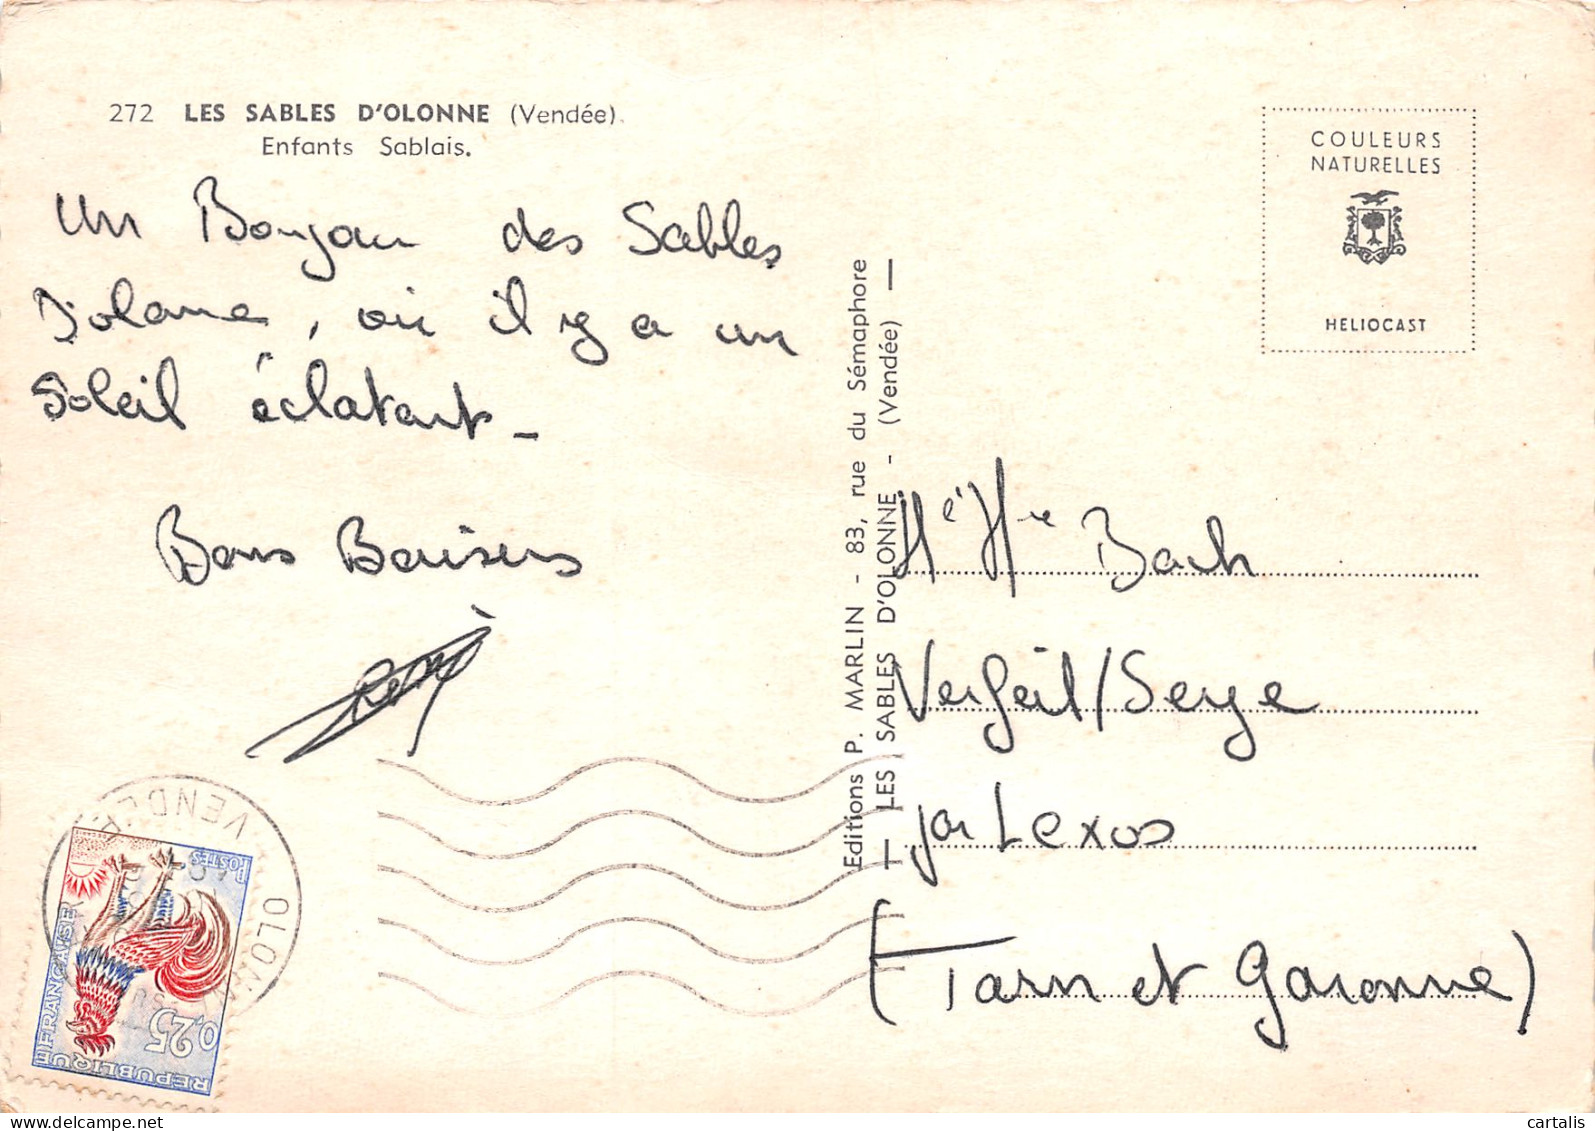 272 LES SABLES D'OLONNE (Vendée).
Enfants Sablais.
Un Bonjour des Sables
D'olonne, où il y a un
Soleil éclatant -
Bons Baisers
Rémy
COULEURS
NATURELLES
HELIOCAST
Editions P. MARLIN - 83, rue du Sémaphore
— LES SABLES D'OLONNE - (Vendée) —
Mr et Mme Bach
Verfeil/Seye
par Lexos
(Tarn et Garonne)
VENDÉE
OLONNE
POSTES
RÉPUBLIQUE FRANÇAISE
0,25
cartalis